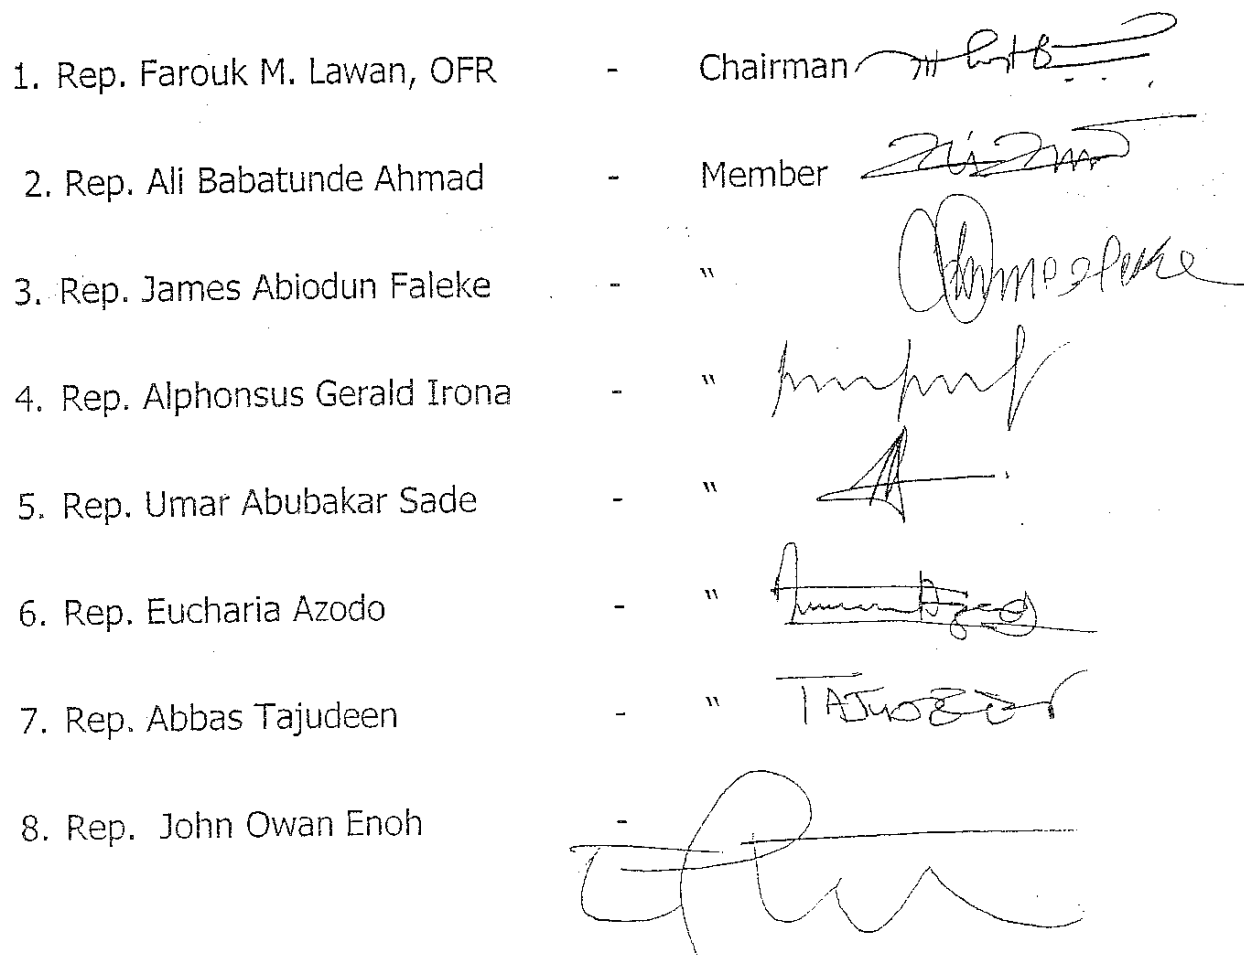 1. Rep. Farouk M. Lawan, OFR - Chairman
2. Rep. Ali Babatunde Ahmad - Member
3. Rep. James Abiodun Faleke - "
4. Rep. Alphonsus Gerald Irona - "
5. Rep. Umar Abubakar Sade - "
6. Rep. Eucharia Azodo - "
7. Rep. Abbas Tajudeen - "
8. Rep. John Owan Enoh -